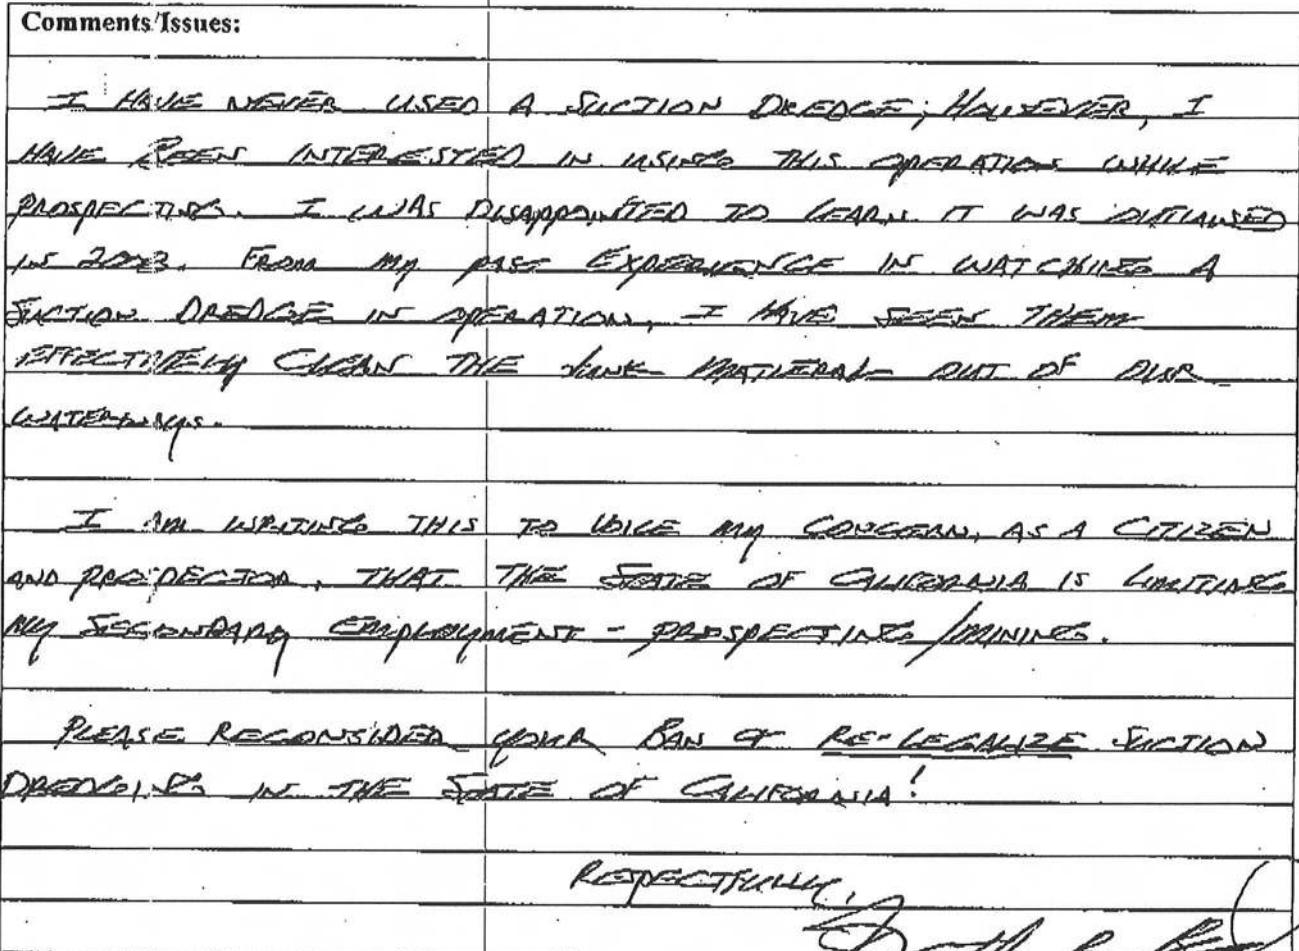 Comments/Issues:
I HAVE NEVER USED A SUCTION DREDGE; HOWEVER, I
HAVE BEEN INTERESTED IN USING THIS OPERATION WHILE
PROSPECTING. I WAS DISAPPOINTED TO LEARN IT WAS OUTLAWED
IN FROM MY PAST EXPERIENCE IN WATCHING A
SUCTION DREDGE IN OPERATION, I HAVE SEEN THEM
EFFECTIVELY CLEAN THE JUNK MATIERAL OUT OF OUR
WATERWAYS.
I AM WRITING THIS TO VOICE MY CONCERN, AS A CITIZEN
AND PROSPECTOR, THAT THE STATE OF CALIFORNIA IS LIMITING
MY SECONDARY EMPLOYMENT - PROSPECTING/MINING.
PLEASE RECONSIDER YOUR BAN RE-LEGALIZE SUCTION
DREDGING IN THE STATE OF CALIFORNIA!
RESPECTFULLY,